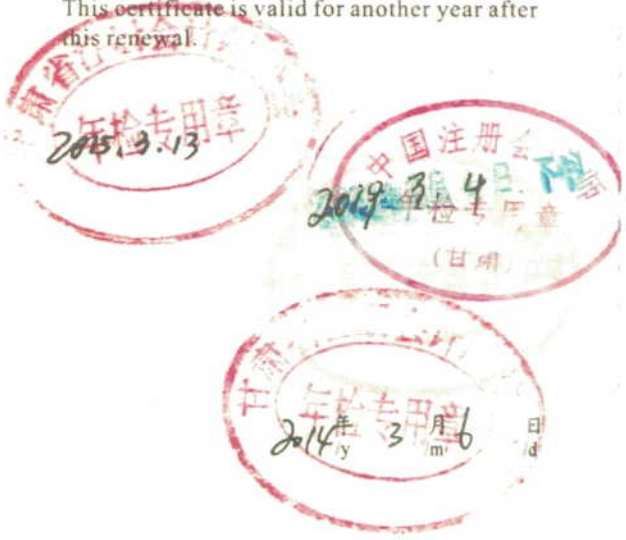 This certificate is valid for another year after
this renewal.
甘肃省
年检专用章
2015.3.13
中国注册会
2019 3. 4
年检专用章
(甘肃)
甘肃
年检专用章
2014年 3月 6 日
/y m d